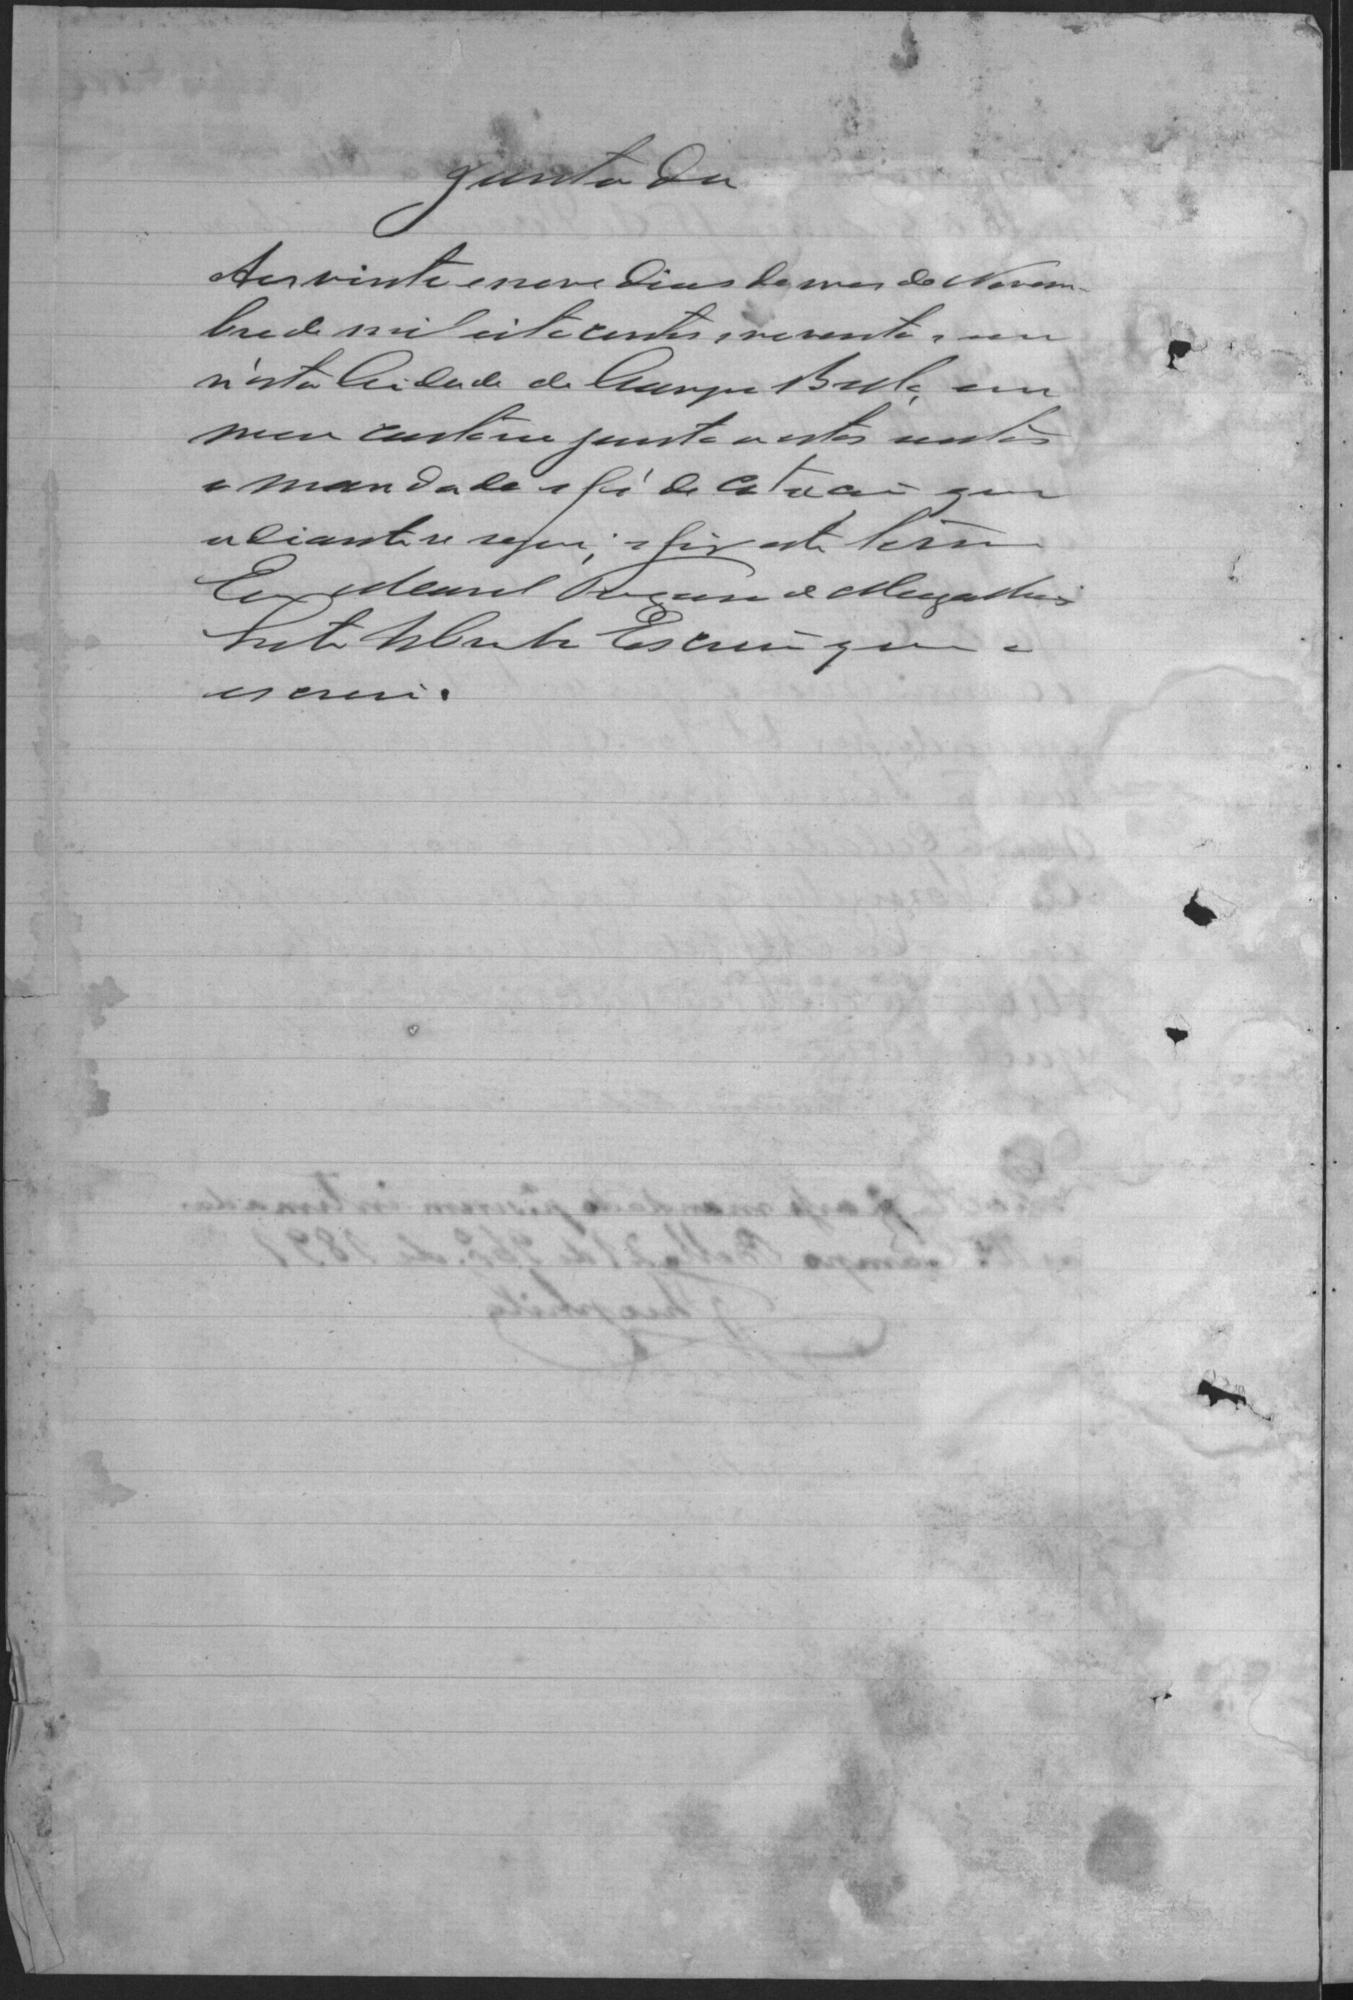 Juntada
Aos vinte e nove dias do mes de Novem-
bro de mil oito centos e noventa e um
n'esta Cidade de Campo Bello, em
meu cartorio junto a estes autos
o mandado e fé de citação que
adiante se segue; e fiz este termo
Eu Manoel de Magalhães
Escrivão que o
escrevi.